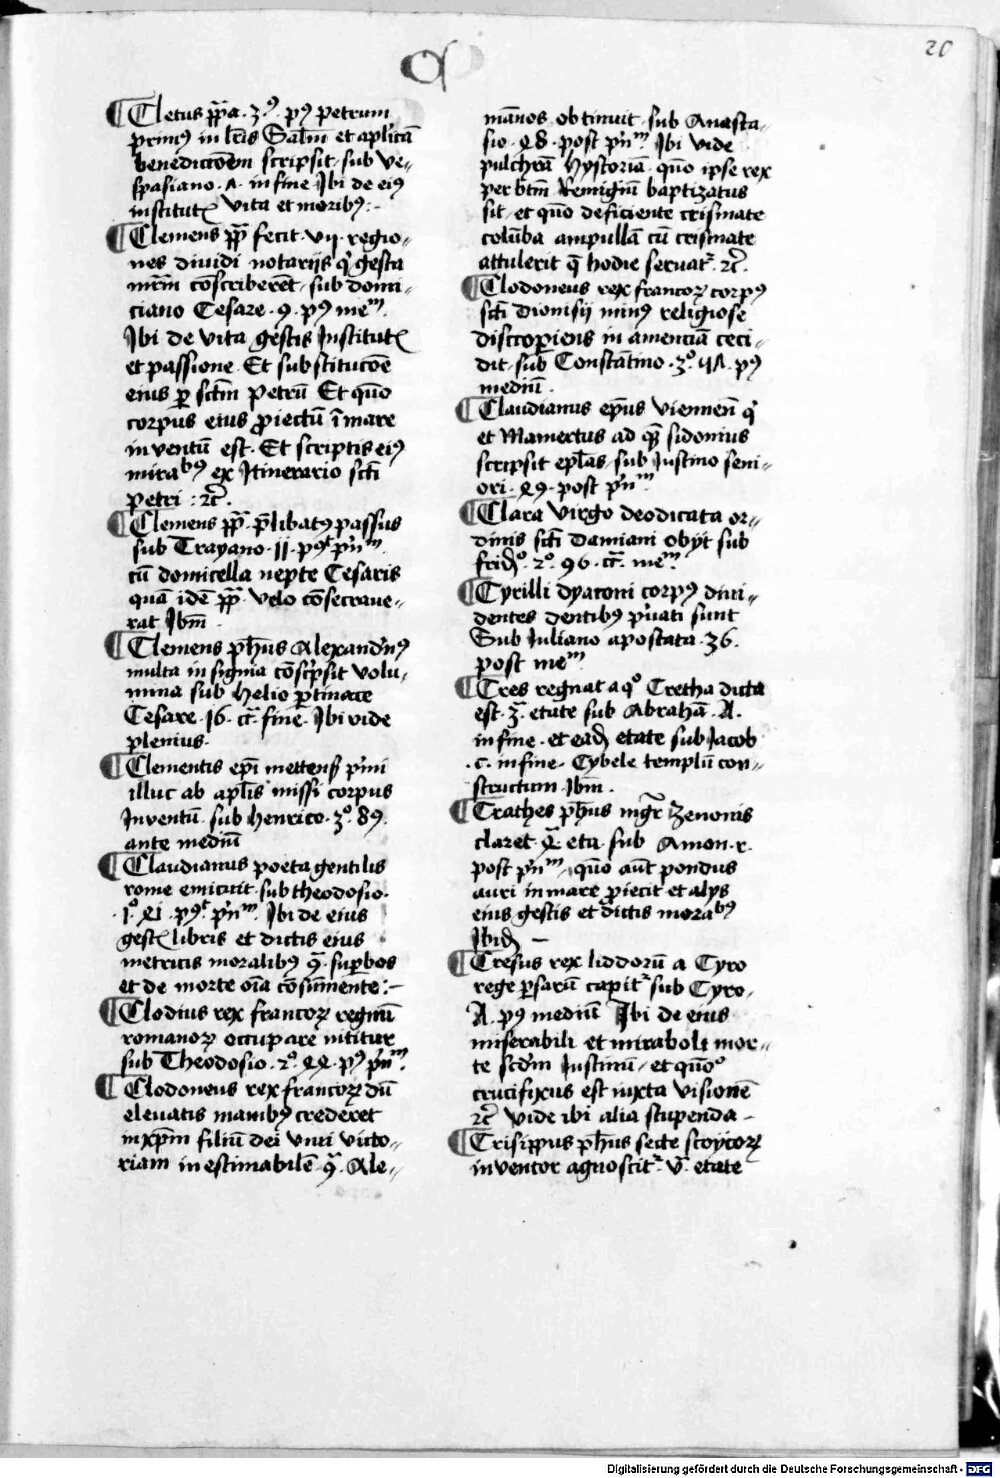 20
C
Cletus pp̄a · 3ꝰ · pꝰ petrum
primꝰ in lr̄is Salut̄m et apl̄icā
benedicc̄oēm scripsit sub ve-
spasiano · A · in fine Ibi de eiꝰ
institut vita et moribꝰ :-
Clemens pp̄ fecit · vij · regio-
nes diuidi notarijs qͥ gesta
mr̄m̄ cōscriberēt · sub domi-
ciano Cesare · 9 · pꝰ meᵐ ·
Ibi de vita gestis Institut
et passione · Et substitucōe
eius ꝑ sc̄tm petrū Et quō
corpus eius ꝓiectū ī mare
inventū est · Et scriptis eiꝰ
mirabꝰ ex Itinerario sc̄ti
petri : ⁊c̄ ·
Clemens pp̄ · p̄libatꝰ passus
sub Trayano · II · pꝰᵗ pͥnᵐ ·
cū domicella nepte Cesaris
quā idē pp̄ · velo cōsecraue-
rat Ibm̄ ·
Clemens ph̄us Alexandͥnꝰ
multa insignia cōscͥpsit volu-
mina sub helio ꝑtinace
Cesare · 16 · ct̄ · fine · Ibi vide
plenius ·
Clementis ep̄i mettensꝭ pͥmi
illuc ab apl̄is missi corpus
Inventū · sub henrico · 3º · 89 ·
ante mediū
Claudianus poeta gentilis
rome emicuit · sub theodosio ·
· 1º · · pꝰᵗ pͥnᵐ · Ibi de eius
gestꝭ libris et dictis eius
metricis moralibꝰ qͣ · suꝑbos
et de morte oīa cōsūmente :-
Clodius rex francoꝝ regnū
romanoꝝ occupare nititur
sub Theodosio · 2º · · pꝰ pͥnᵐ ·
Clodoneus rex francoꝝ dū
eleuatis manibꝰ crederet
in xp̄m filiū dei viui victo-
riam inestimabilē · qͣ · Ale-
mānos obtinuit · sub Anasta-
sio · · post pͥnᵐ · Ibi vide
pulchrā hystoriā · quō ipse rex
per btm̄ Remigiū baptizatus
sit · et quō deficiente crismate
colūba ampullā cū crismate
attulerit q̄ hodie seruatᷣ · ⁊c̄ ·
Clodoneus rex francoꝝ corpꝰ
sc̄ti dionisii minꝰ religiose
discoopiens in amenciā ceci-
dit · sub Constātino · 3º · · pꝰ
mediū ·
Claudianus ep̄us viennen̄ qͥ
et Mamertus ad quē sidonius
scripsit ep̄las · sub Iustino seni-
ori · · post pͥnᵐ
Clara virgo deodicata or-
dinis sc̄ti damiani obijt sub
frid̄º · 2º · 96 · ct̄ · meᵐ ·
Cyrilli dyaconi corpꝰ diui-
dentes dentibꝰ pͥuati sunt
Sub Iuliano apostata · 36 ·
post meᵐ
Cres regnat a qº Cretha dicta
est · 3ͣ · etate sub Abrahā · A ·
in fine · et ead̄ etate sub Iacob
· c · in fine · Cybele templū con-
structum · Ibm̄ ·
Crathes ph̄us mgr̄ Zenonis
claret · · eta · sub Amon · r ·
post pͥnᵐ · quō aūt pondus
auri in mare ꝓiecit et alys
eius gestis et dictis morabꝰ
Ibid̄ -
Cresus rex liddorū a Cyro
rege ꝑsarū capitᷣ sub Cyro ·
A · pꝰ mediū Ibi de eius
miserabili et miraboli mor-
te scd̄m Iustinū · et quō
crucifixus est iuxta visionē
⁊c̄ vide ibi alia stupenda -
Crisippus ph̄us secte stoycoꝝ
inventor agnoscitᷣ · vͣ · etate
Digitalisierung gefördert durch die Deutsche Forschungsgemeinschaft - DFG